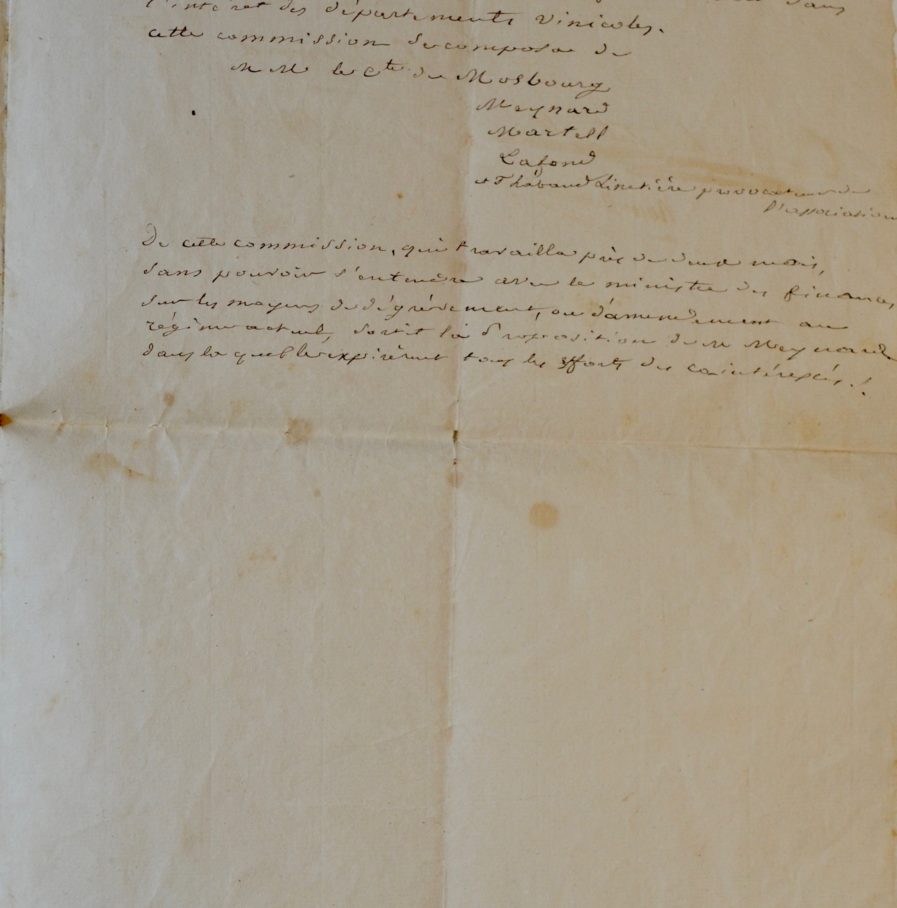 dans
l'intérêt des départements vinicoles.
cette commission se composa de
MM le Cte de Mosbourg
Meynard
Martell
Lafond
et Thabaud Linetière provocateur de
l'association
De cette commission, qui travailla près de deux mois,
sans pouvoir s'entendre avec le ministre des finances,
sur les moyens de dégrèvement, ou d'amendement au
régime actuel, sortit la Proposition de M Meynard
dans laquelle expirèrent tous les efforts des cointéressés.!